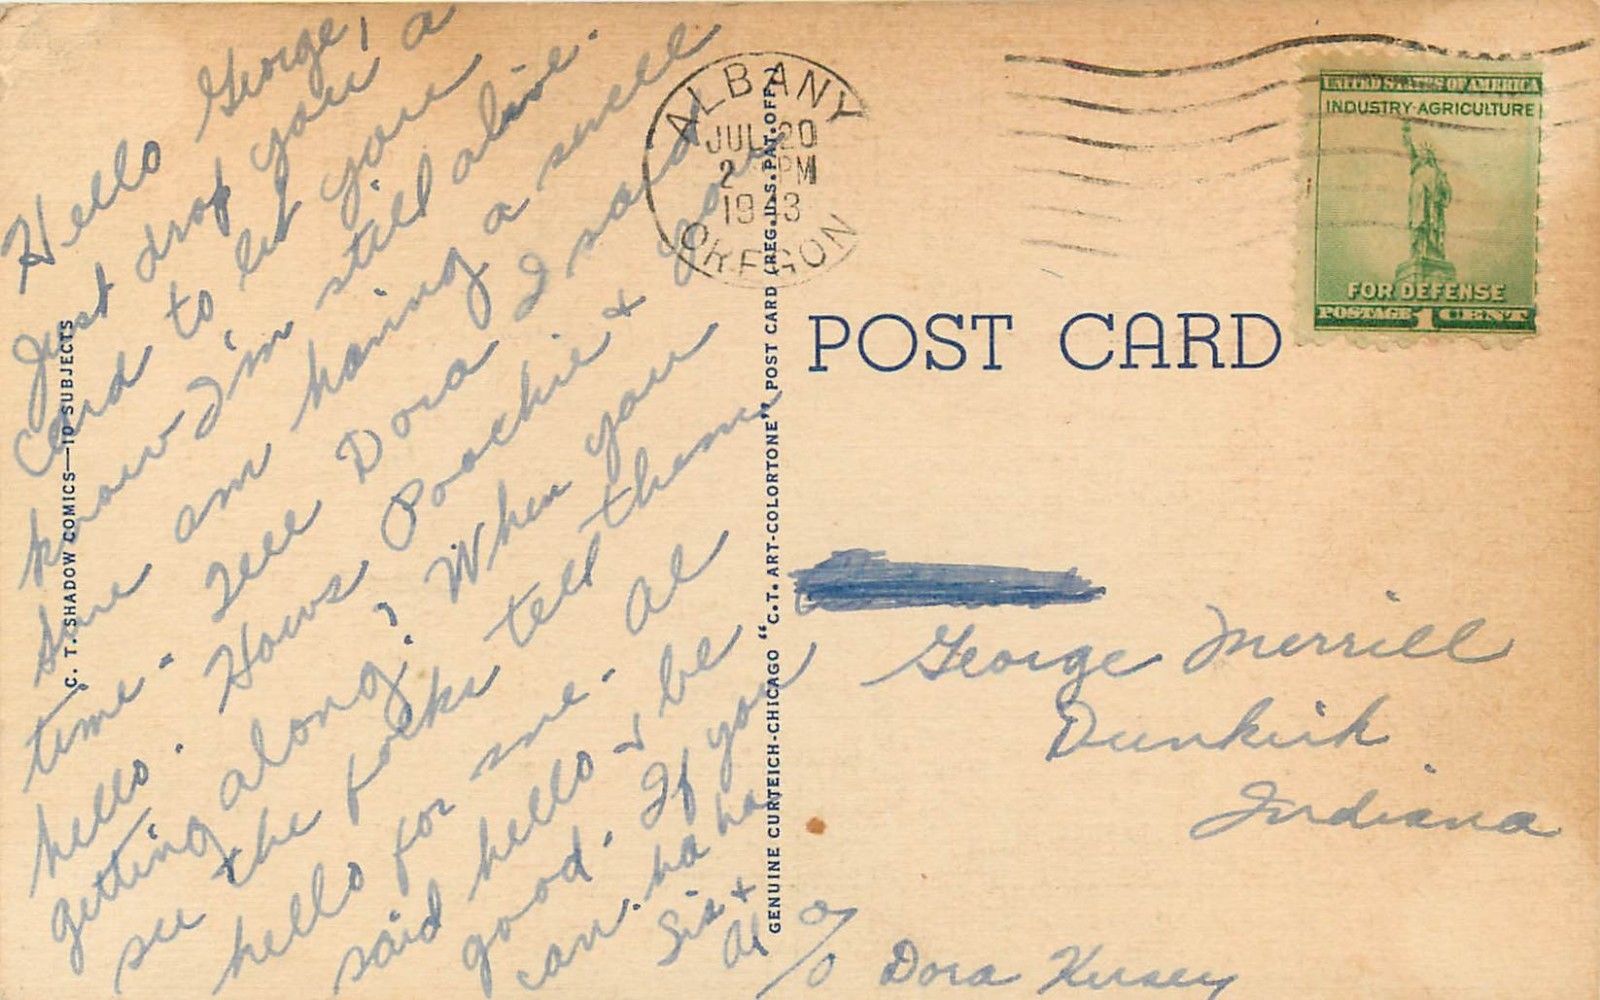 Hello George,
Just drop you a
card to let you
know I'm still alive.
Sure am having a swell
time. Tell Dora I said
hello. Hows Poochie & you
getting along? When you
see the folks tell them
hello for me. Al
said hello & be
good. If you
can. ha ha
Sis &
Al
C. T. SHADOW COMICS—10 SUBJECTS
GENUINE CURTEICH-CHICAGO "C.T. ART-COLORTONE" POST CARD (REG. U.S. PAT. OFF.)
ALBANY
JUL 20
2 PM
1943
OREGON
UNITED STATES OF AMERICA
INDUSTRY-AGRICULTURE
FOR DEFENSE
POSTAGE 1 CENT
POST CARD
George Merrill
Dunkirk
Indiana
c/o Dora Kersey